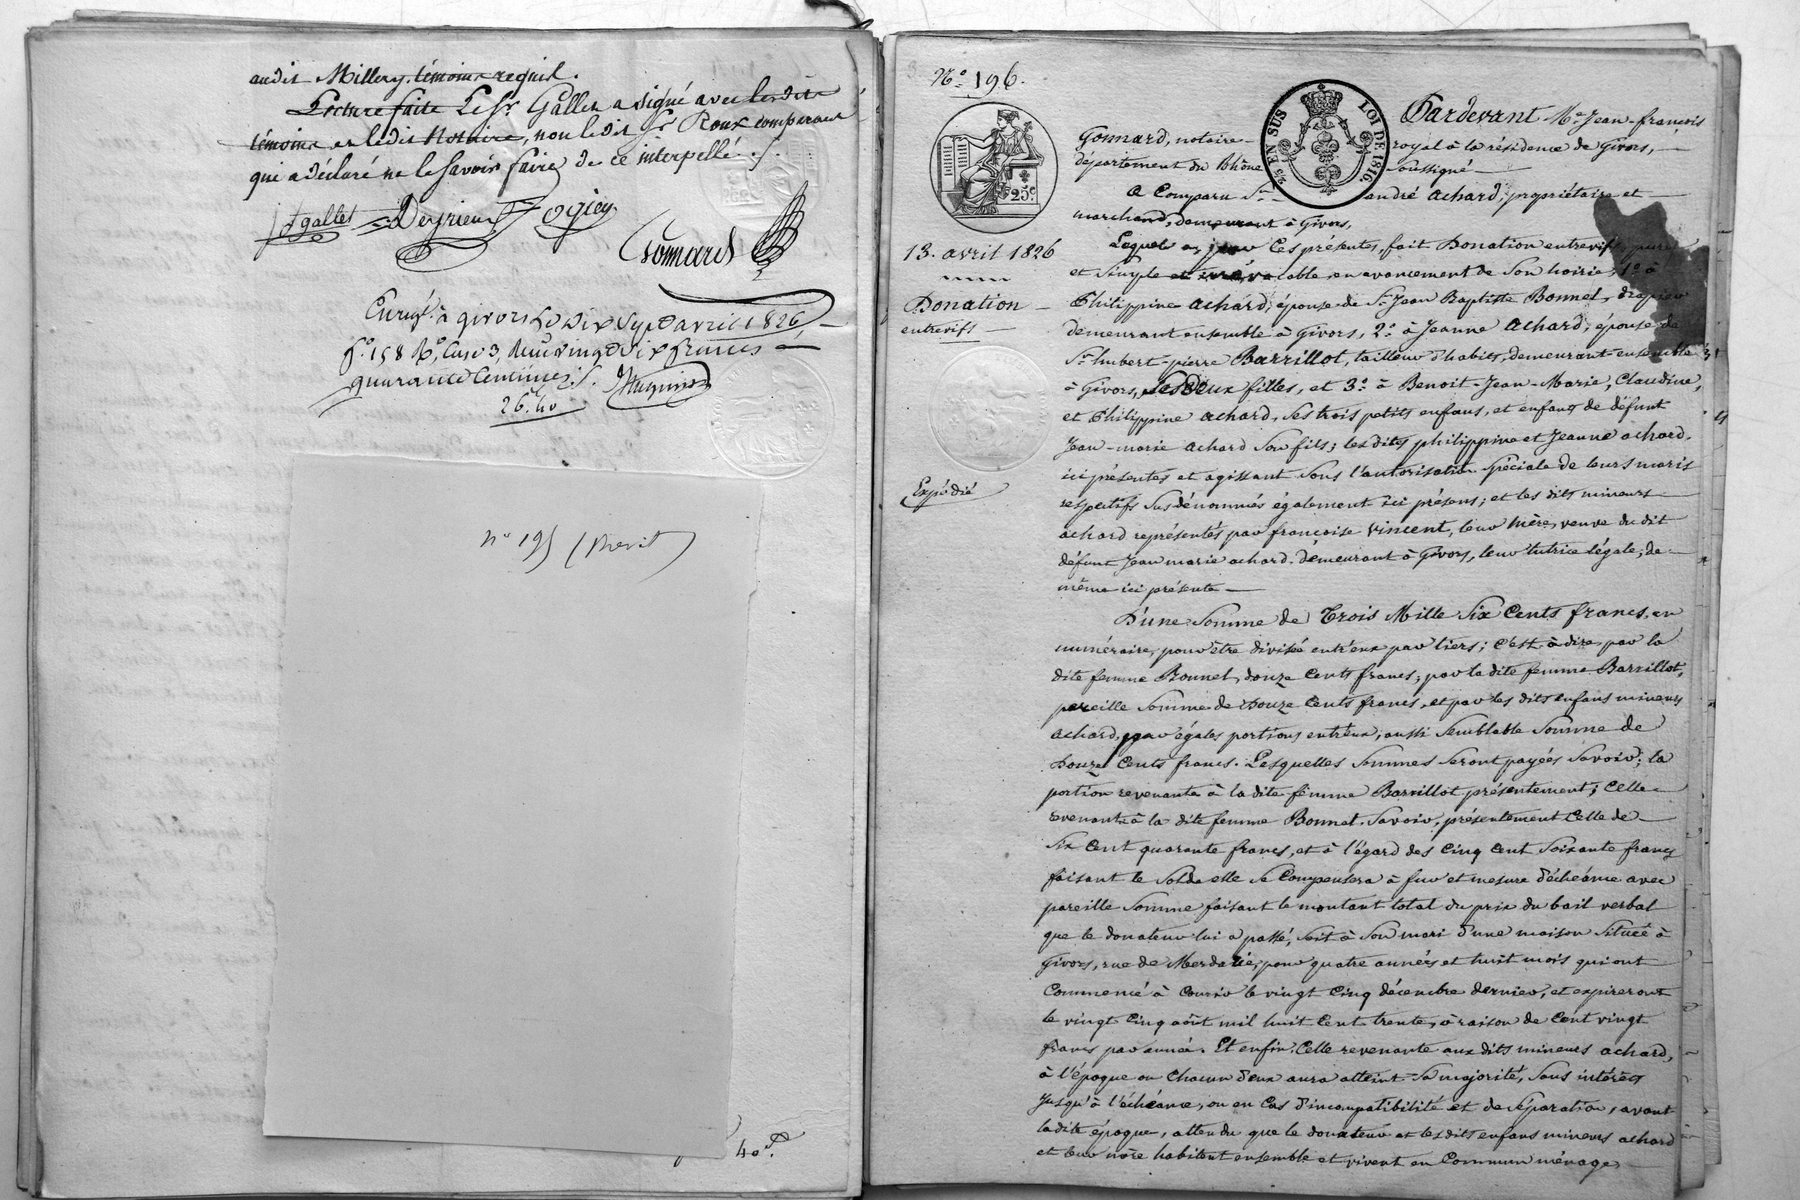 audit Millery, témoins requis.
Lecture faite Le Sr. Gallet a signé avec lesdits
témoins et ledit Notaire, non ledit Sr. Roux comparant
qui a déclaré ne le savoir faire de ce interpellé.
gallet Deyrieux Gonnard
Enregt. à givors Le dix sept avril 1826,
fo. 158 Ro. Case 3, Reçu vingt six francs
quarante centimes.
26. 40
no 195 (Brevet)
40.
No. 196.
25c
EN SUS
LOI DE 1816.
13. avril 1826
Donation
entrevifs
Expédié
Pardevant Me. Jean-françois
Gonnard, notaire royal à la résidence de Givors,
département du Rhône soussigné
a Comparu Sr. andré achard, propriétaire et
marchand, demeurant à Givors,
Lequel a, par ces présentes, fait Donation entrevifs, pure
et simple et irrévocable, en avancement de son hoirie, 1o. à
Philippine achard, épouse de Sr. Jean Baptiste Bonnet, drapier
demeurant ensemble à Givors, 2o. à Jeanne achard, épouse de
Sr. hubert-pierre Barrillot, tailleur d'habits, demeurant ensemble
à Givors, ses deux filles, et 3o. à Benoit-Jean-Marie, Claudine,
et Philippine achard, ses trois petits enfans, et enfans de défunt
Jean-marie achard son fils; lesdites philippine et Jeanne achard,
ici présentes et agissant sous l'autorisation spéciale de leurs maris
respectifs susdénommés également ici présens; et les dits mineurs
achard représentés par françoise vincent, leur mère, veuve du dit
défunt Jean marie achard, demeurant à Givors, leur tutrice légale, de
même ici présente
D'une somme de Trois Mille Six Cents francs, en
numéraire, pour être divisée entr'eux par tiers; c'est à dire, par la
dite femme Bonnet, douze cents francs; par la dite femme Barrillot,
pareille somme de douze cents francs, et par les dits enfans mineurs
achard, par égales portions entr'eux, aussi semblable somme de
douze cents francs. Lesquelles sommes seront payées savoir; la
portion revenante à la dite femme Barrillot présentement; celle
revenante à la dite femme Bonnet, savoir, présentement celle de
six cent quarante francs, et à l'égard des cinq cent soixante francs
faisant le solde elle se compensera à fur et mesure d'échéance avec
pareille somme faisant le montant total du prix du bail verbal
que le donateur lui a passé, soit à son mari d'une maison située à
Givors, rue de Merdarié, pour quatre années et huit mois qui ont
commencé à courir le vingt cinq décembre dernier, et expireront
le vingt cinq août mil huit cent trente, à raison de cent vingt
francs par année. Et enfin, celle revenante aux dits mineurs achard,
à l'époque ou chacun d'eux aura atteint sa majorité, sans intérêts
jusqu'à l'échéance, ou en cas d'incompatibilité et de séparation, avant
la dite époque, attendu que le donateur et les dits enfans mineurs achard
et leur mère habitent ensemble et vivent en commun ménage